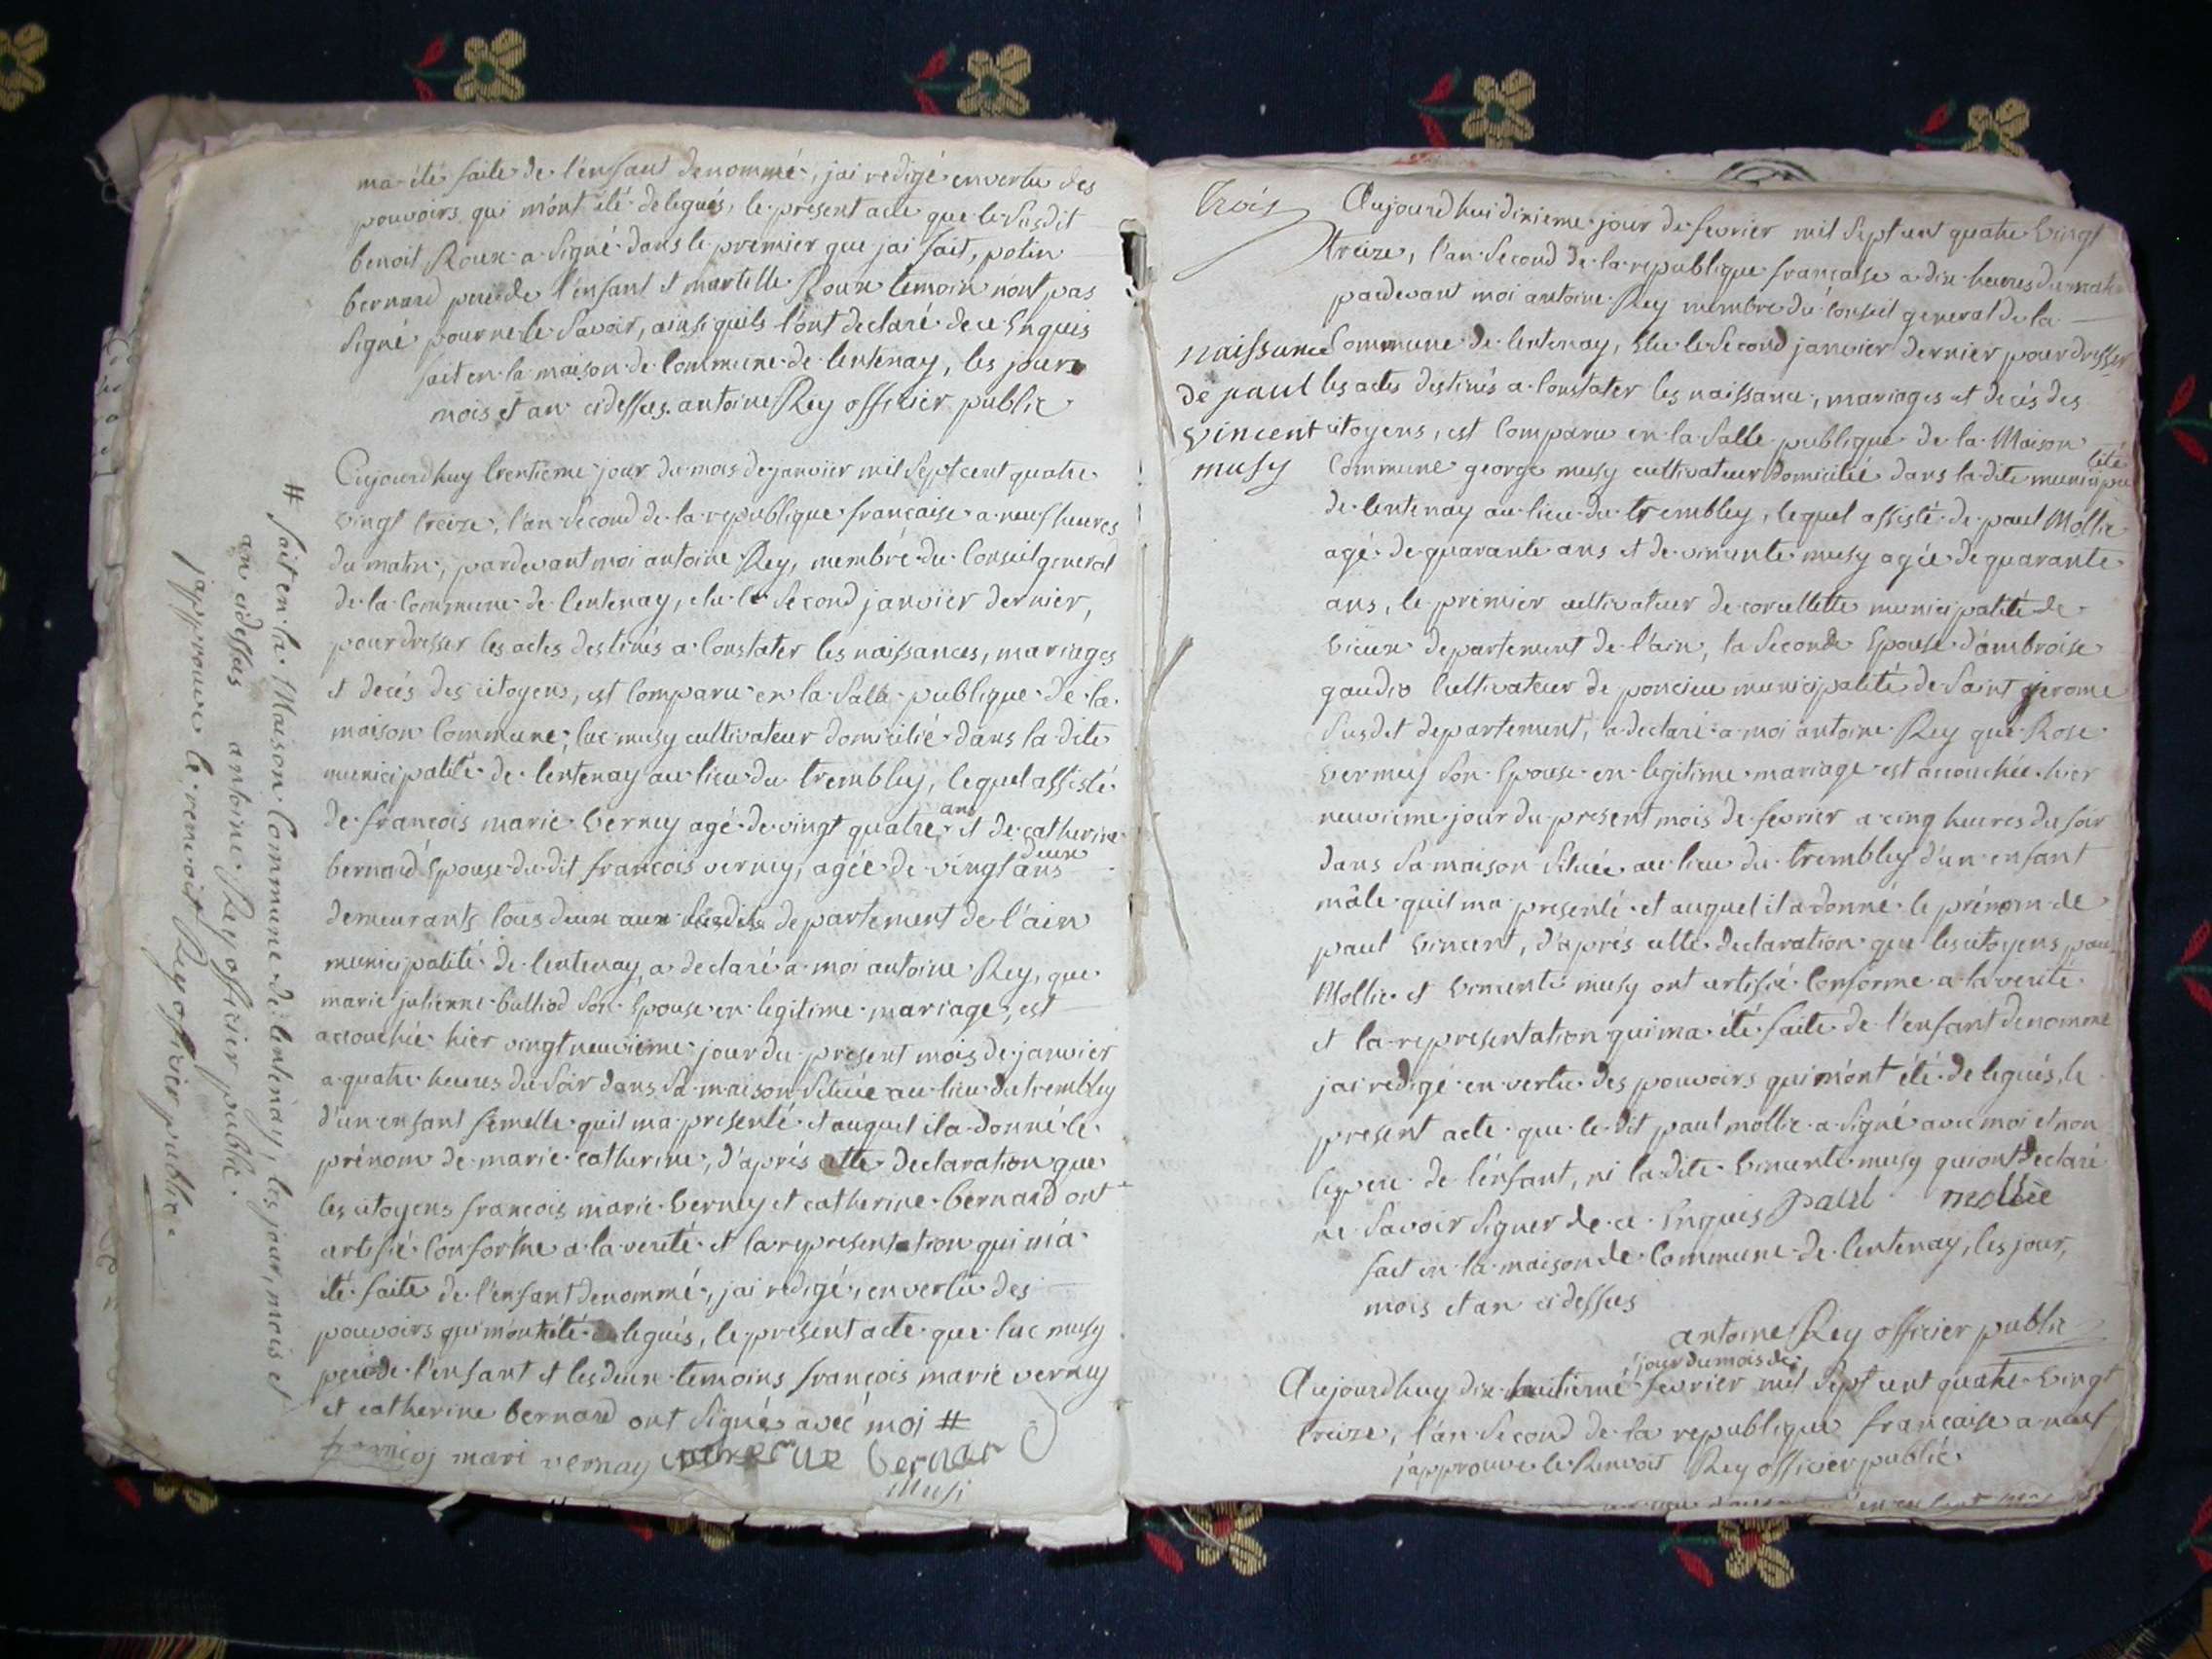 ma été faite de l'enfant denommé, jai redigé en vertu des
pouvoirs qui m'ont été delegués, le present acte que le susdit
benoit Roux a signé dans le premier que jai fait, potin
bernard pere de l'enfant et martelle Roux temoin n'ont pas
signé pour ne le savoir, ainsi quils l'ont declaré de ce Enquis
fait en la maison de Commune de lentenay, les jours
mois et an cidessus. antoine Rey officier public
Aujourdhuy trentieme jour du mois de janvier mil Sept cent quatre
vingt treize, l'an Second de la republique française a neuf heures
du matin, pardevant moi antoine Rey, membre du Conseil general
de la Commune de lentenay, elu le Second janvier dernier,
pour dresser les actes destinés a Constater les naissances, mariages
et decés des citoyens, est Comparu en la Salle publique de la
maison Commune, luc musy cultivateur domicilié dans la dite
municipalité de lentenay au lieu du trembley, lequel assisté
de françois marie Verney agé de vingt quatre ans et de catherine
bernard Epouse du dit françois verney, agée de vingt deux ans
demeurants tous deux aux susdits departement de l'ain
municipalité de lentenay, a declaré a moi antoine Rey, que
marie julienne bulliod son Epouse en legitime mariage, est
accouchée hier vingt neuvieme jour du present mois de janvier
a quatre heures du Soir dans Sa maison Située au lieu du trembley
d'un enfant femelle quil ma presenté et auquel il a donné le
prénom de marie catherine, d'aprés cette declaration que
les citoyens françois marie Verney et catherine bernard ont
certifié Conforme a la verité et la representation qui m'a
été faite de l'enfant denommé, jai redigé, en vertu des
pouvoirs qui m'ont été delegués, le present acte que luc musy
pere de l'enfant et les deux temoins françois marie verney
et catherine bernard ont Signé avec moi #
françoj mari vernay catherine bernar
Musi
# fait en la Maison Commune de lentenay, les jour, mois et
an cidessus antoine Rey officier public.
japprouve le renvoit Rey officier public
Trois
Aujourdhui dixieme jour de fevrier mil Sept cent quatre Vingt
treize, l'an Second de la republique française a dix heures du matin
pardevant moi antoine Rey membre du Conseil general de la
naissance
de paul
Vincent
musy
Commune de lentenay, Elu le Second janvier dernier pour dresser
les actes destinés a Constater les naissance, mariages et decés des
citoyens, est Comparu en la Salle publique de la Maison
Commune george musy cultivateur domicilié dans la dite municipalité
de lentenay au lieu du trembley, lequel assisté de paul Mollie
agé de quarante ans et de vincente musy agée de quarante
ans, le premier cultivateur de corcellette municipalité de
Vieux departement de l'ain, la Seconde Epouse d'ambroise
gaudio Cultivateur de poncieu municipalité de Saint jerome
Susdit departement, a declaré a moi antoine Rey que Rose
verney Son Epouse en legitime mariage est accouchée hier
neuvieme jour du present mois de fevrier a cinq heures du soir
dans Sa maison Située au lieu du trembley d'un enfant
mâle quil ma presenté et auquel il a donné le prénom de
paul Vincent, d'aprés cette declaration que les citoyens paul
Mollie et Vincente musy ont certifié Conforme a la verité
et la representation qui ma été faite de l'enfant denommé
jai redigé en vertu des pouvoirs qui m'ont été delegués, le
present acte que le dit paul mollie a Signé avec moi et non
le pere de l'enfant, ni la dite Vincente musy qui ont declaré
ne Savoir Signer de ce Enquis paul mollie
fait en la maison de Commune de lentenay, les jour,
mois et an cidessus
antoine Rey officier public
Aujourdhuy dix huitieme jour du mois de fevrier mil Sept cent quatre Vingt
treize, l'an Second de la republique française a neuf
japprouve le Renvoit Rey officier public